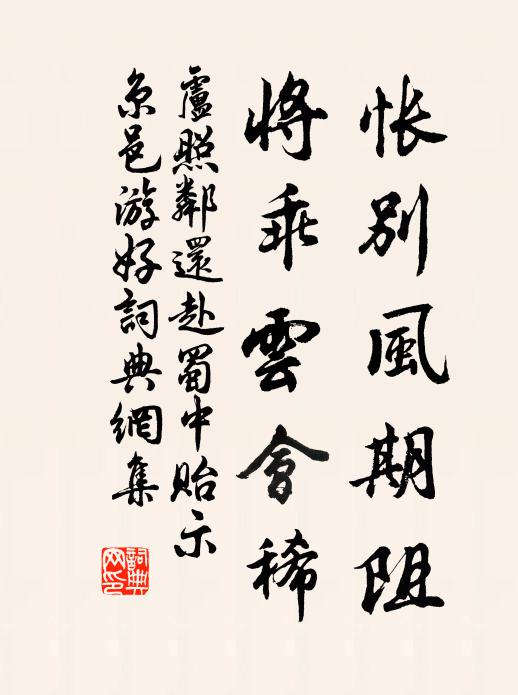 悵別風期阻
將乖雲會稀
盧照鄰還赴蜀中貽示
京邑游好詞典網集
詞典網印